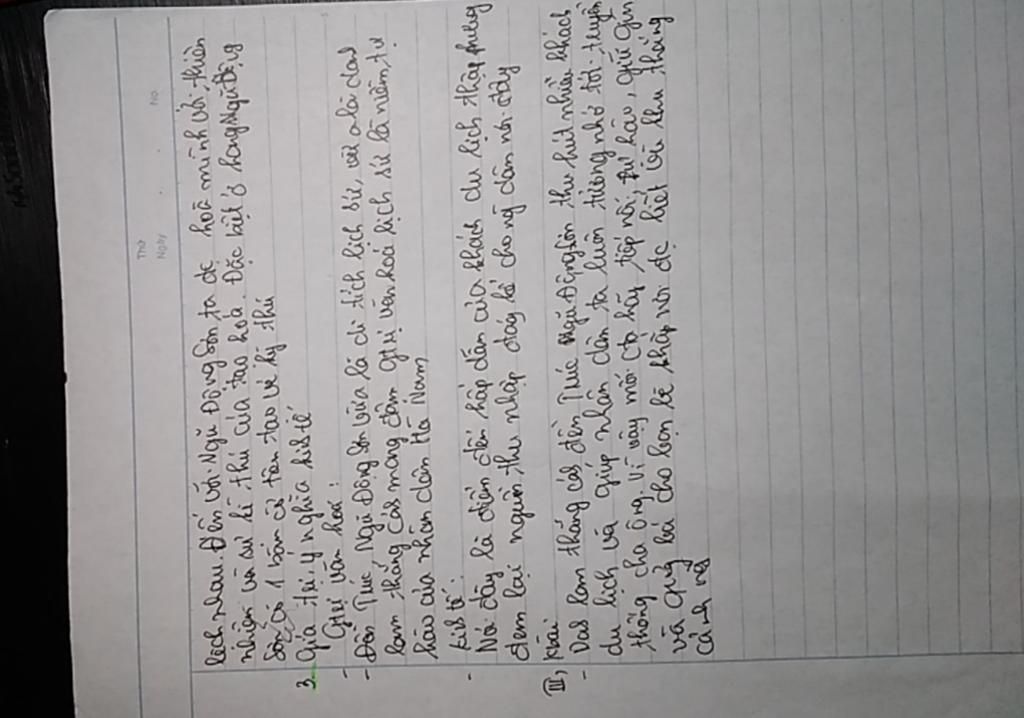 Thứ
Ngày
No.
lệch nhau. Đến với Ngũ Động Sơn ta đc hoà mình với thiên
nhiên và sự kì thú của tạo hoá. Đặc biệt ở hang Ngũ Động
Sơn có 1 bàn cờ tiên tạo vẻ kỳ thú
3. Gía trị, ý nghĩa kinh tế
- Gtrị văn hoá:
- Đền Trúc Ngũ Động Sơn vừa là di tích lịch sử, vừa là danh
lam thắng cảnh mang đậm gtrị văn hoá lịch sử là niềm tự
hào của nhân dân Hà Nam
- kinh tế:
Nơi đây là điểm đến hấp dẫn của khách du lịch thập phương
đem lại nguồn thu nhập đáng kể cho ng dân nơi đây
III, Khái
- Danh lam thắng cảnh đền Trúc Ngũ Động Sơn thu hút nhiều khách
du lịch và giúp nhân dân ta luôn tưởng nhớ tới truyền
thống cha ông. Vì vậy mỗi cta hãy tiếp nối, tự hào, giữ gìn
và quảng bá cho bạn bè khắp nơi đc biết về khu thắng
cảnh